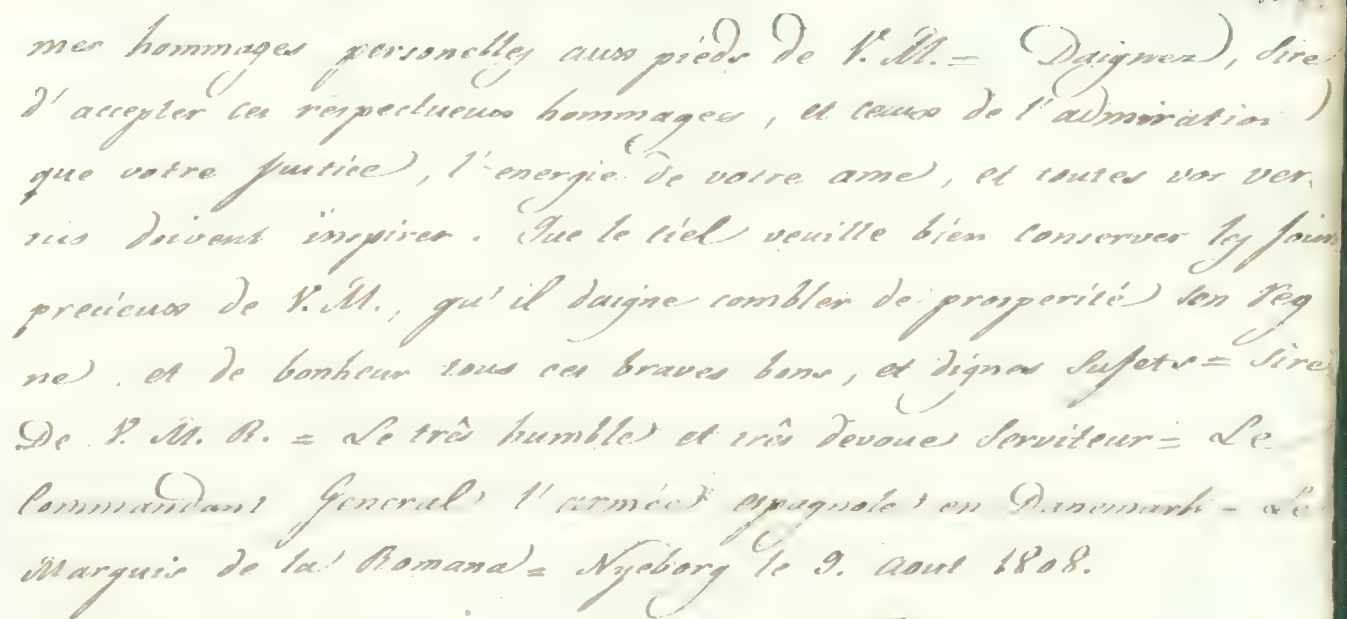 mes hommages personelles aux piéds de V. M. = Daignez, Sire
d'accepter ces respectueux hommages, et ceux de l'admiration
que votre Justice, l'energie de votre ame, et toutes vos ver-
tus doivent inspirer. Que le Ciel veuille bien conserver les jours
precieux de V. M., qu'il daigne combler de prosperité son reg
ne. et de bonheur tous ces braves bons, et dignes Sujets = Sire
De V. M. R. = Le três humble et três devoue Serviteur = Le
Commandant General l'armée espagnole en Danemark = Le
Marquis de la Romana = Nyeborg le 9. Aout 1808.